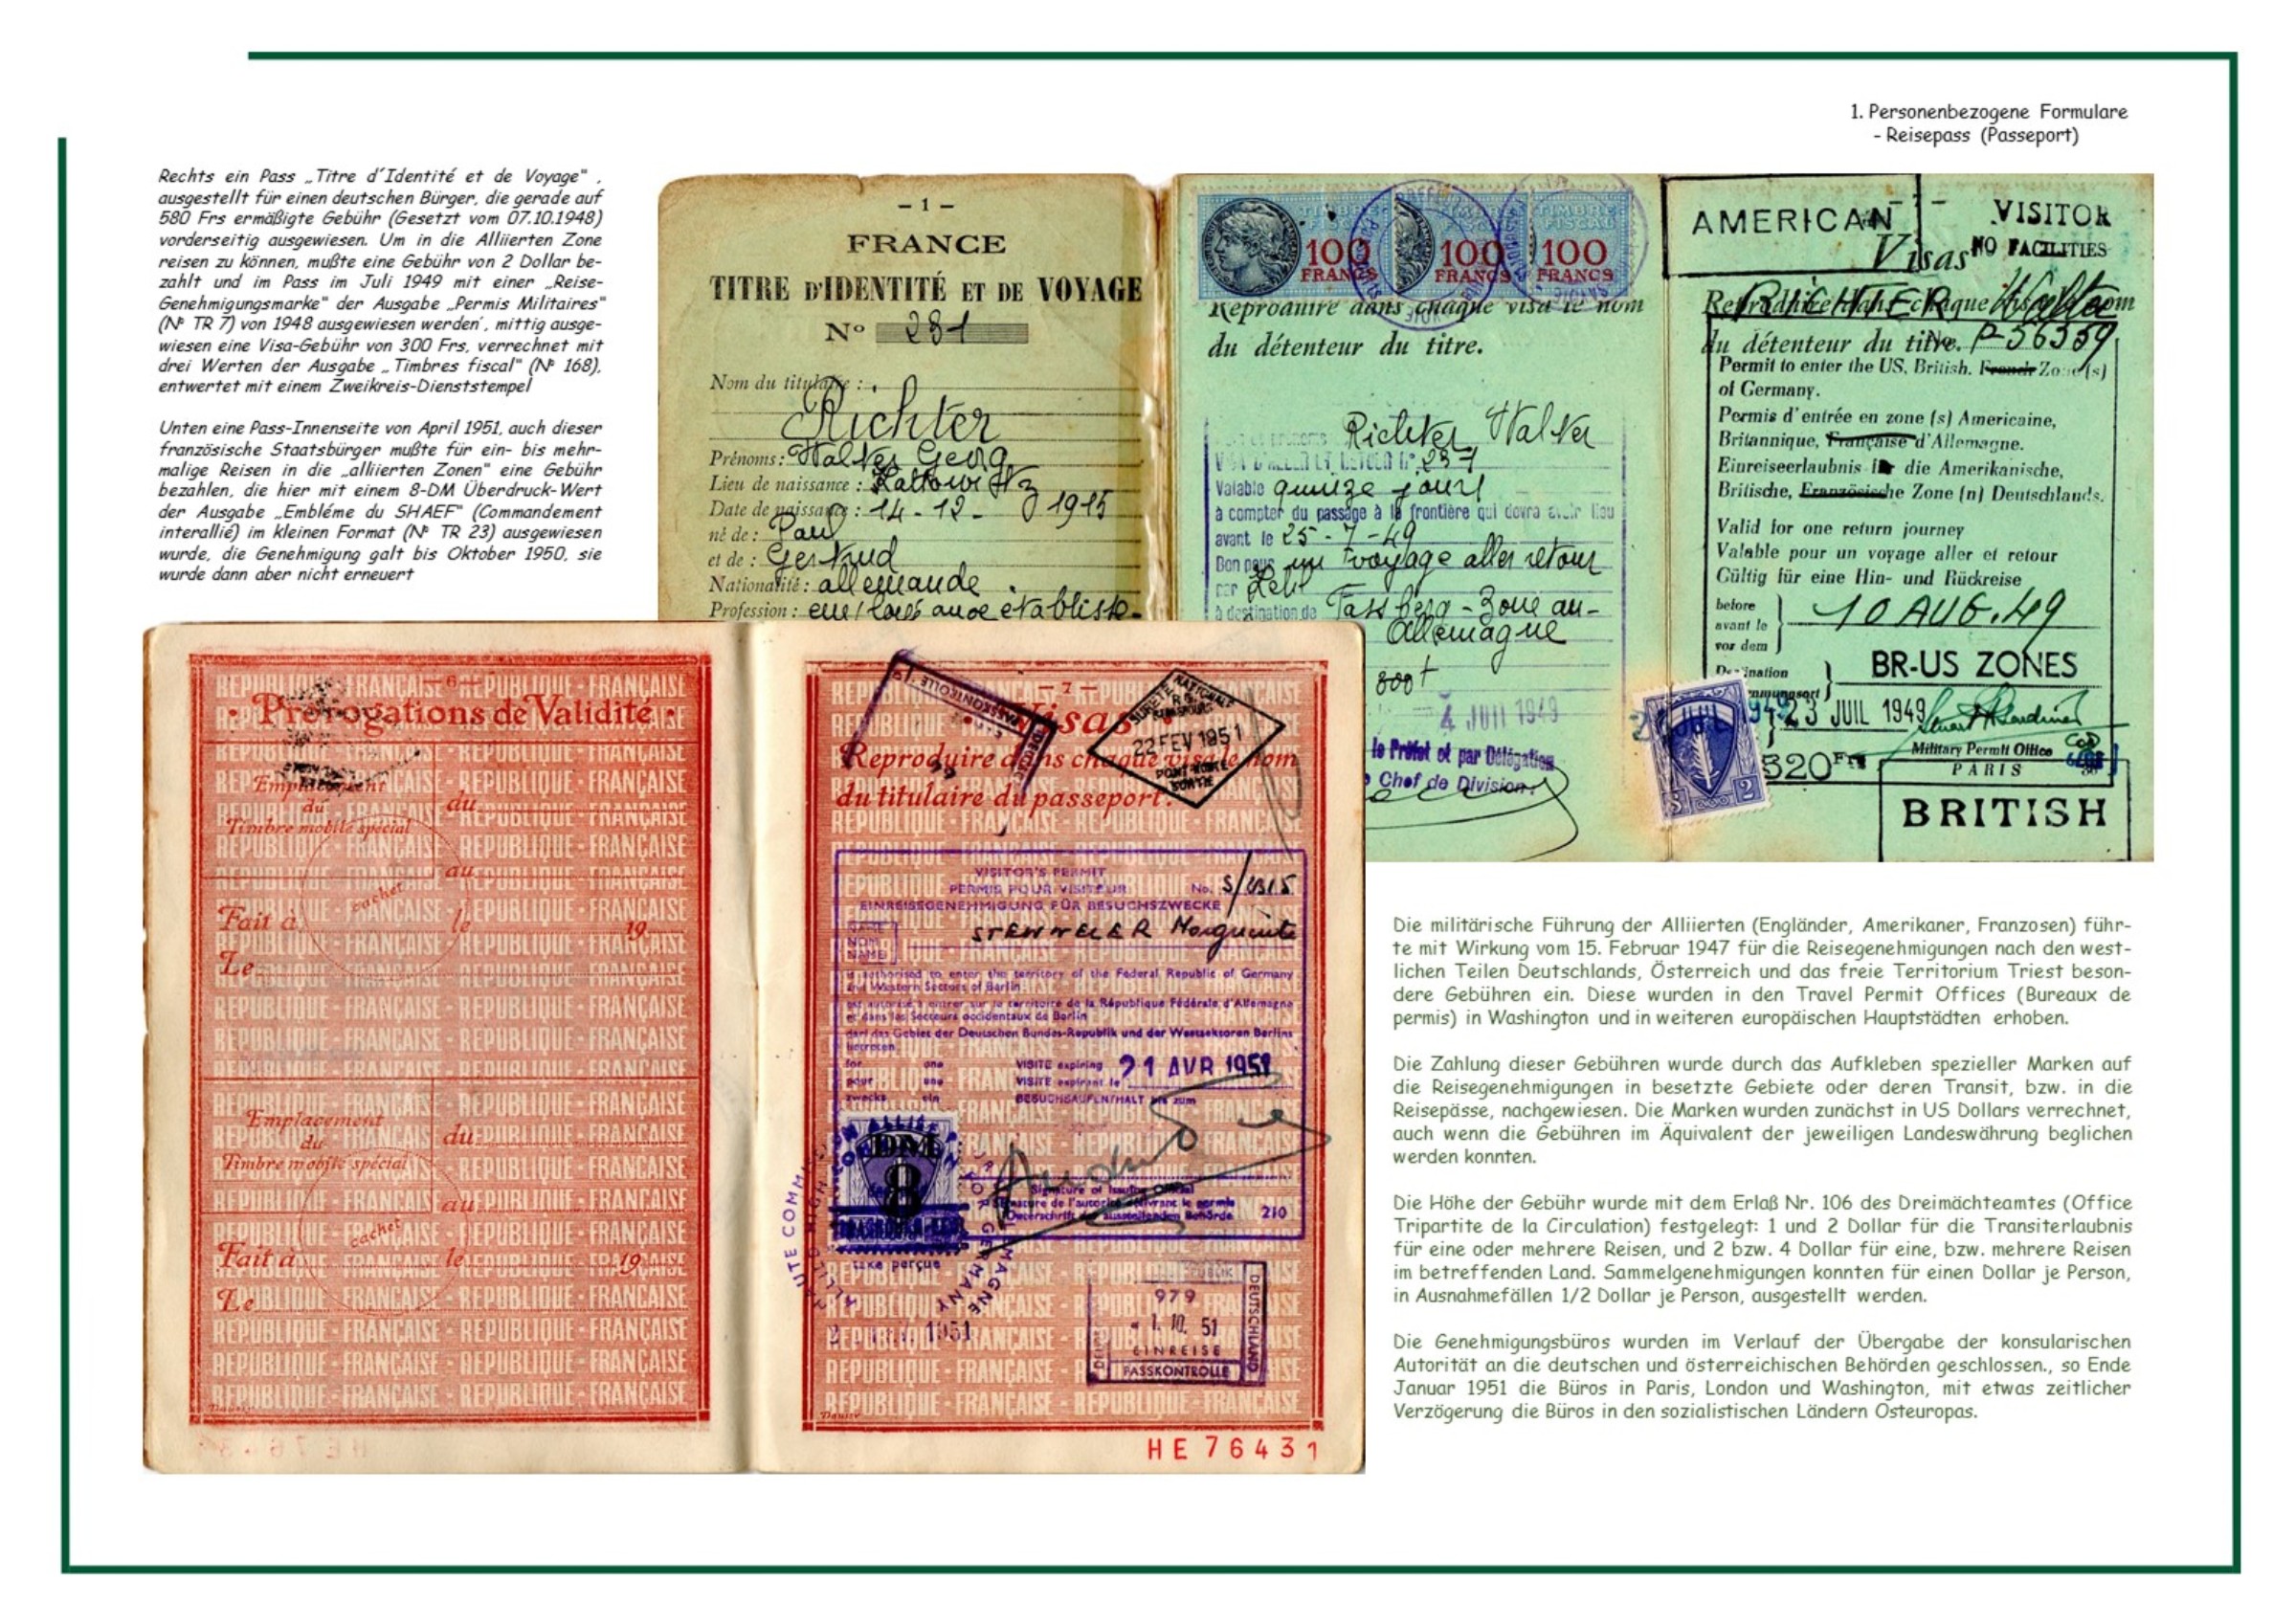 1. Personenbezogene Formulare
- Reisepass (Passeport)
Rechts ein Pass „Titre d'Identité et de Voyage" ,
ausgestellt für einen deutschen Bürger, die gerade auf
580 Frs ermäßigte Gebühr (Gesetzt vom 07.10.1948)
vorderseitig ausgewiesen. Um in die Alliierten Zone
reisen zu können, mußte eine Gebühr von 2 Dollar be-
zahlt und im Pass im Juli 1949 mit einer „Reise-
Genehmigungsmarke" der Ausgabe „Permis Militaires"
(Nº TR 7) von 1948 ausgewiesen werden', mittig ausge-
wiesen eine Visa-Gebühr von 300 Frs, verrechnet mit
drei Werten der Ausgabe „Timbres fiscal" (Nº 168),
entwertet mit einem Zweikreis-Dienststempel
Unten eine Pass-Innenseite von April 1951, auch dieser
französische Staatsbürger mußte für ein- bis mehr-
malige Reisen in die „alliierten Zonen" eine Gebühr
bezahlen, die hier mit einem 8-DM Überdruck-Wert
der Ausgabe „Embléme du SHAEF" (Commandement
interallié) im kleinen Format (Nº TR 23) ausgewiesen
wurde, die Genehmigung galt bis Oktober 1950, sie
wurde dann aber nicht erneuert
- 1 -
FRANCE
TITRE D'IDENTITÉ ET DE VOYAGE
Nº 231
Nom du titulaire :
Richter
Prénoms : Walter Georg
Lieu de naissance : Kattowitz
Date de naissance : 14-12- 1915
né de : Paul
et de : Gertrud
Nationalité : allemande
Profession :
100 FRANCS
100 FRANCS
TIMBRE FISCAL
100 FRANCS
Reproduire dans chaque visa le nom
du détenteur du titre.
Richter Walter
Valable quinze jours
à compter du passage à la frontière qui devra avoir lieu
avant le 25-7-49
Bon pour un voyage aller retour
par Kehl
à destination de
Allemagne
4 JUIL 1949
le Préfet et par Délégation
Chef de Division
AMERICAN
VISITOR
Visas
NO FACILITIES
RICHTER Walter
Reproduire dans chaque visa le nom
du détenteur du titre.
P-56359
Permit to enter the US, British, French Zone (s)
of Germany.
Permis d'entrée en zone (s) Americaine,
Britannique, Française d'Allemagne.
Einreiseerlaubnis für die Amerikanische,
Britische, Französische Zone (n) Deutschlands.
Valid for one return journey
Valable pour un voyage aller et retour
Gültig für eine Hin- und Rückreise
before
avant le
vor dem
10 AUG. 49
Destination
BR-US ZONES
23 JUIL 1949
Military Permit Office
PARIS
BRITISH
$ 2
- 6 -
Prorogations de Validité
Emplacement
du
Timbre mobile spécial
du
au
cachet
Fait à
le
19
Le
Emplacement
du
Timbre mobile spécial
du
au
cachet
Fait à
le
19
Le
REPUBLIQUE - FRANÇAISE - REPUBLIQUE - FRANÇAISE
- 7 -
Visas
Reproduire dans chaque visa le nom
du titulaire du passeport.
SURETE NATIONALE
22 FEV 1951
SORTIE
VISITOR'S PERMIT
PERMIS POUR VISITEUR
No.
EINREISEGENEHMIGUNG FÜR BESUCHSZWECKE
NAME
NOM
NAME
Marguerite
is authorised to enter the territory of the Federal Republic of Germany
and Western Sectors of Berlin
est autorisé à entrer sur le territoire de la République Fédérale d'Allemagne
et dans les Secteurs occidentaux de Berlin
darf das Gebiet der Deutschen Bundes-Republik und der Westsektoren Berlins
betreten
for one VISITE expiring
pour une VISITE expirant le
zwecks ein BESUCHSAUFENTHALT bis zum
21 AVR 1951
DM
8
Signature of issuing Official
Signature de l'autorité délivrant le permis
Unterschrift der ausstellenden Behörde
210
taxe perçue
1951
979
1. 10. 51
EINREISE
PASSKONTROLLE
DEUTSCHLAND
HE 76431
Die militärische Führung der Alliierten (Engländer, Amerikaner, Franzosen) führ-
te mit Wirkung vom 15. Februar 1947 für die Reisegenehmigungen nach den west-
lichen Teilen Deutschlands, Österreich und das freie Territorium Triest beson-
dere Gebühren ein. Diese wurden in den Travel Permit Offices (Bureaux de
permis) in Washington und in weiteren europäischen Hauptstädten erhoben.
Die Zahlung dieser Gebühren wurde durch das Aufkleben spezieller Marken auf
die Reisegenehmigungen in besetzte Gebiete oder deren Transit, bzw. in die
Reisepässe, nachgewiesen. Die Marken wurden zunächst in US Dollars verrechnet,
auch wenn die Gebühren im Äquivalent der jeweiligen Landeswährung beglichen
werden konnten.
Die Höhe der Gebühr wurde mit dem Erlaß Nr. 106 des Dreimächteamtes (Office
Tripartite de la Circulation) festgelegt: 1 und 2 Dollar für die Transiterlaubnis
für eine oder mehrere Reisen, und 2 bzw. 4 Dollar für eine, bzw. mehrere Reisen
im betreffenden Land. Sammelgenehmigungen konnten für einen Dollar je Person,
in Ausnahmefällen 1/2 Dollar je Person, ausgestellt werden.
Die Genehmigungsbüros wurden im Verlauf der Übergabe der konsularischen
Autorität an die deutschen und österreichischen Behörden geschlossen., so Ende
Januar 1951 die Büros in Paris, London und Washington, mit etwas zeitlicher
Verzögerung die Büros in den sozialistischen Ländern Osteuropas.